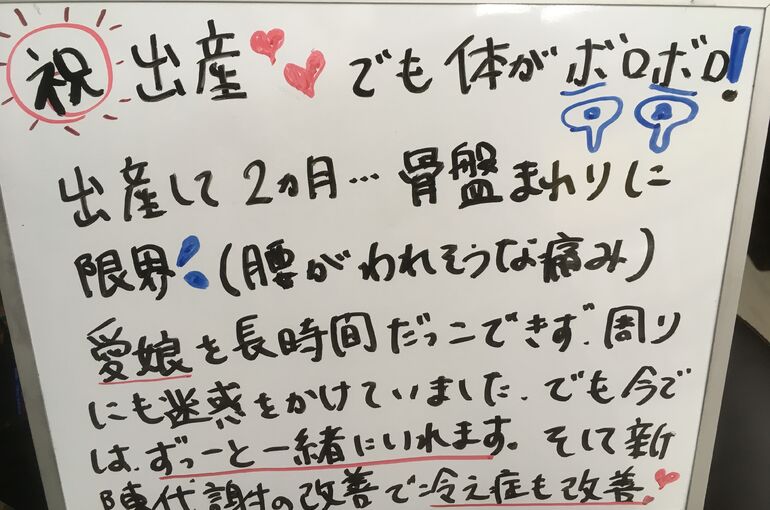 祝 出産 でも 体が ボロボロ!
出産して 2ヵ月… 骨盤まわりに
限界!(腰がわれそうな痛み)
愛娘を長時間だっこできず、周り
にも迷惑をかけていました、でも今で
は、ずっーと一緒にいれます。そして新
陳代謝の改善で冷え症も改善